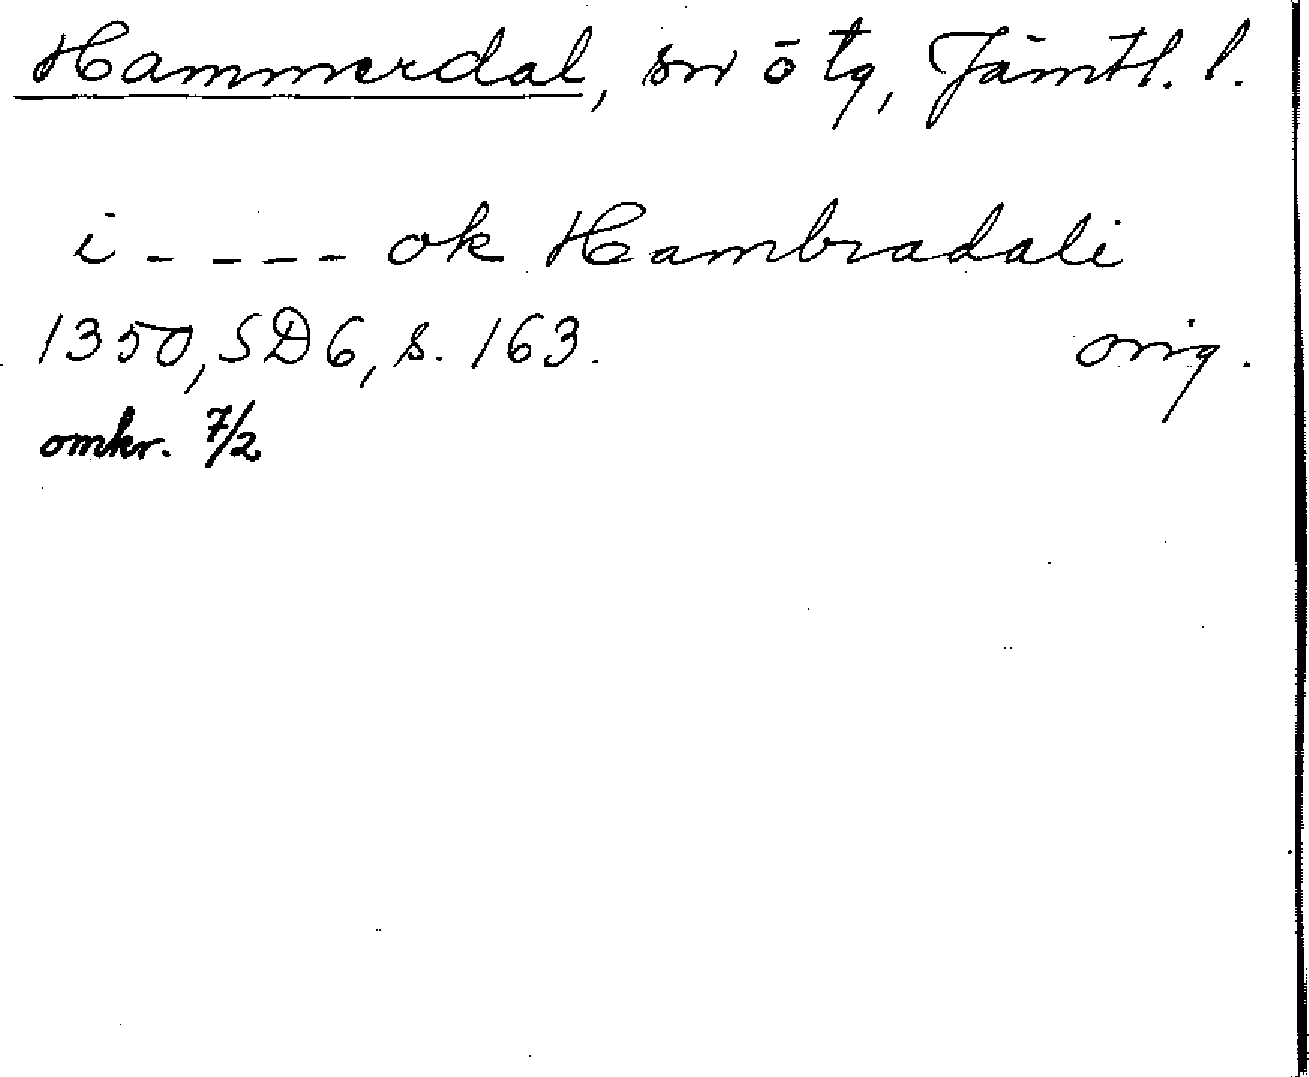 Hammerdal, sn ö tg, Jämtl. l.
i - - - - ok Hambradali
1350, SD 6, s. 163. orig.
omkr. 7/2